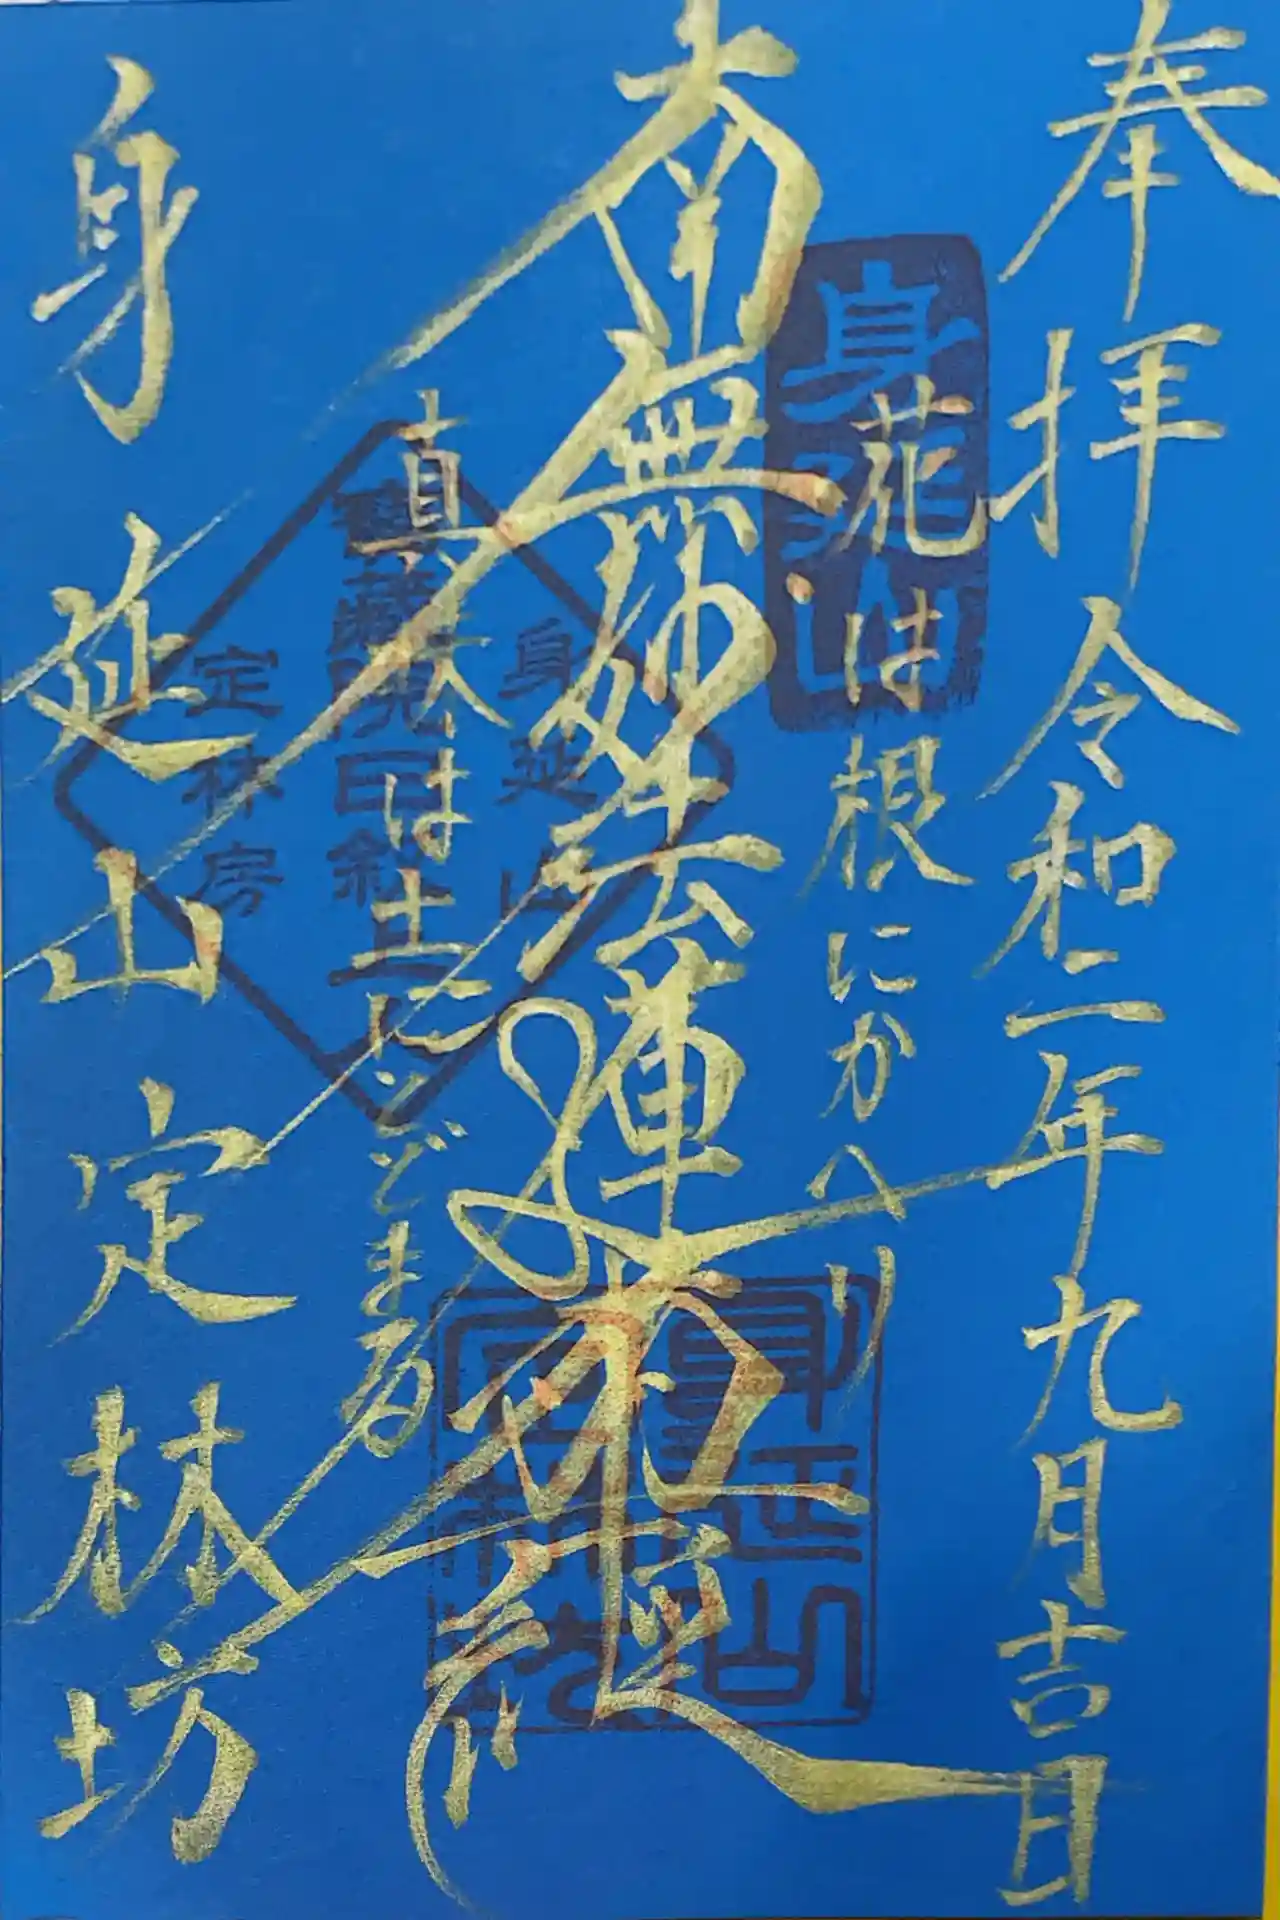 奉拝 令和二年九月吉日
花は根にかへり
南無妙法蓮華経
真味は土にとどまる
身延山定林坊
身延山
身延山
定林房
身延山